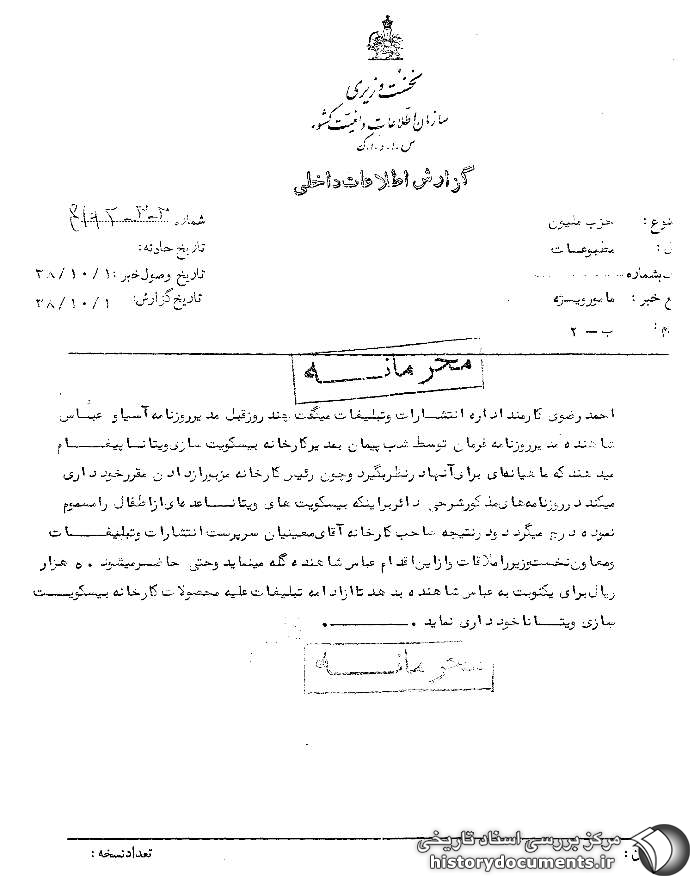 نخست وزیری
سازمان اطلاعات و امنیت کشور
س.ا.و.ا.ک
گزارش اطلاعات داخلی
نوع : حزب ملیون
شماره
: مطبوعات
تاریخ حادثه:
بشماره
تاریخ وصول خبر: ۳۸/۱۰/۱
ع خبر : مامور ویژه
تاریخ گزارش: ۳۸/۱۰/۱
م : ب – ۲
محرمانه
احمد رضوی کارمند اداره انتشارات و تبلیغات میگفت چند روز قبل مدیر روزنامه آسیا و عباس
شاهنده مدیر روزنامه فرمان توسط شب پیمان بمدیر کارخانه بیسکویت سازی ویتانا پیغام
میدهند که ماهیانه‌ای برای آنها در نظر بگیرد و چون رئیس کارخانه مزبور از دادن مقرر خودداری
میکند در روزنامه‌های مذکور شرحی دائر براینکه بیسکویت های ویتانا عده‌ای از اطفال را مسموم
نموده درج میگردد و در نتیجه صاحب کارخانه آقای معینیان سرپرست انتشارات و تبلیغات
ومعاون نخست وزیر را ملاقات و از این اقدام عباس شاهنده گله مینماید وحتی حاضر میشود ۵۰ هزار
ریال برای یکنوبت به عباس شاهنده بدهد تا از ادامه تبلیغات علیه محصولات کارخانه بیسکویت
سازی ویتانا خودداری نماید .
محرمانه
تعداد نسخه :
مرکز بررسی اسناد تاریخی
historydocuments.ir